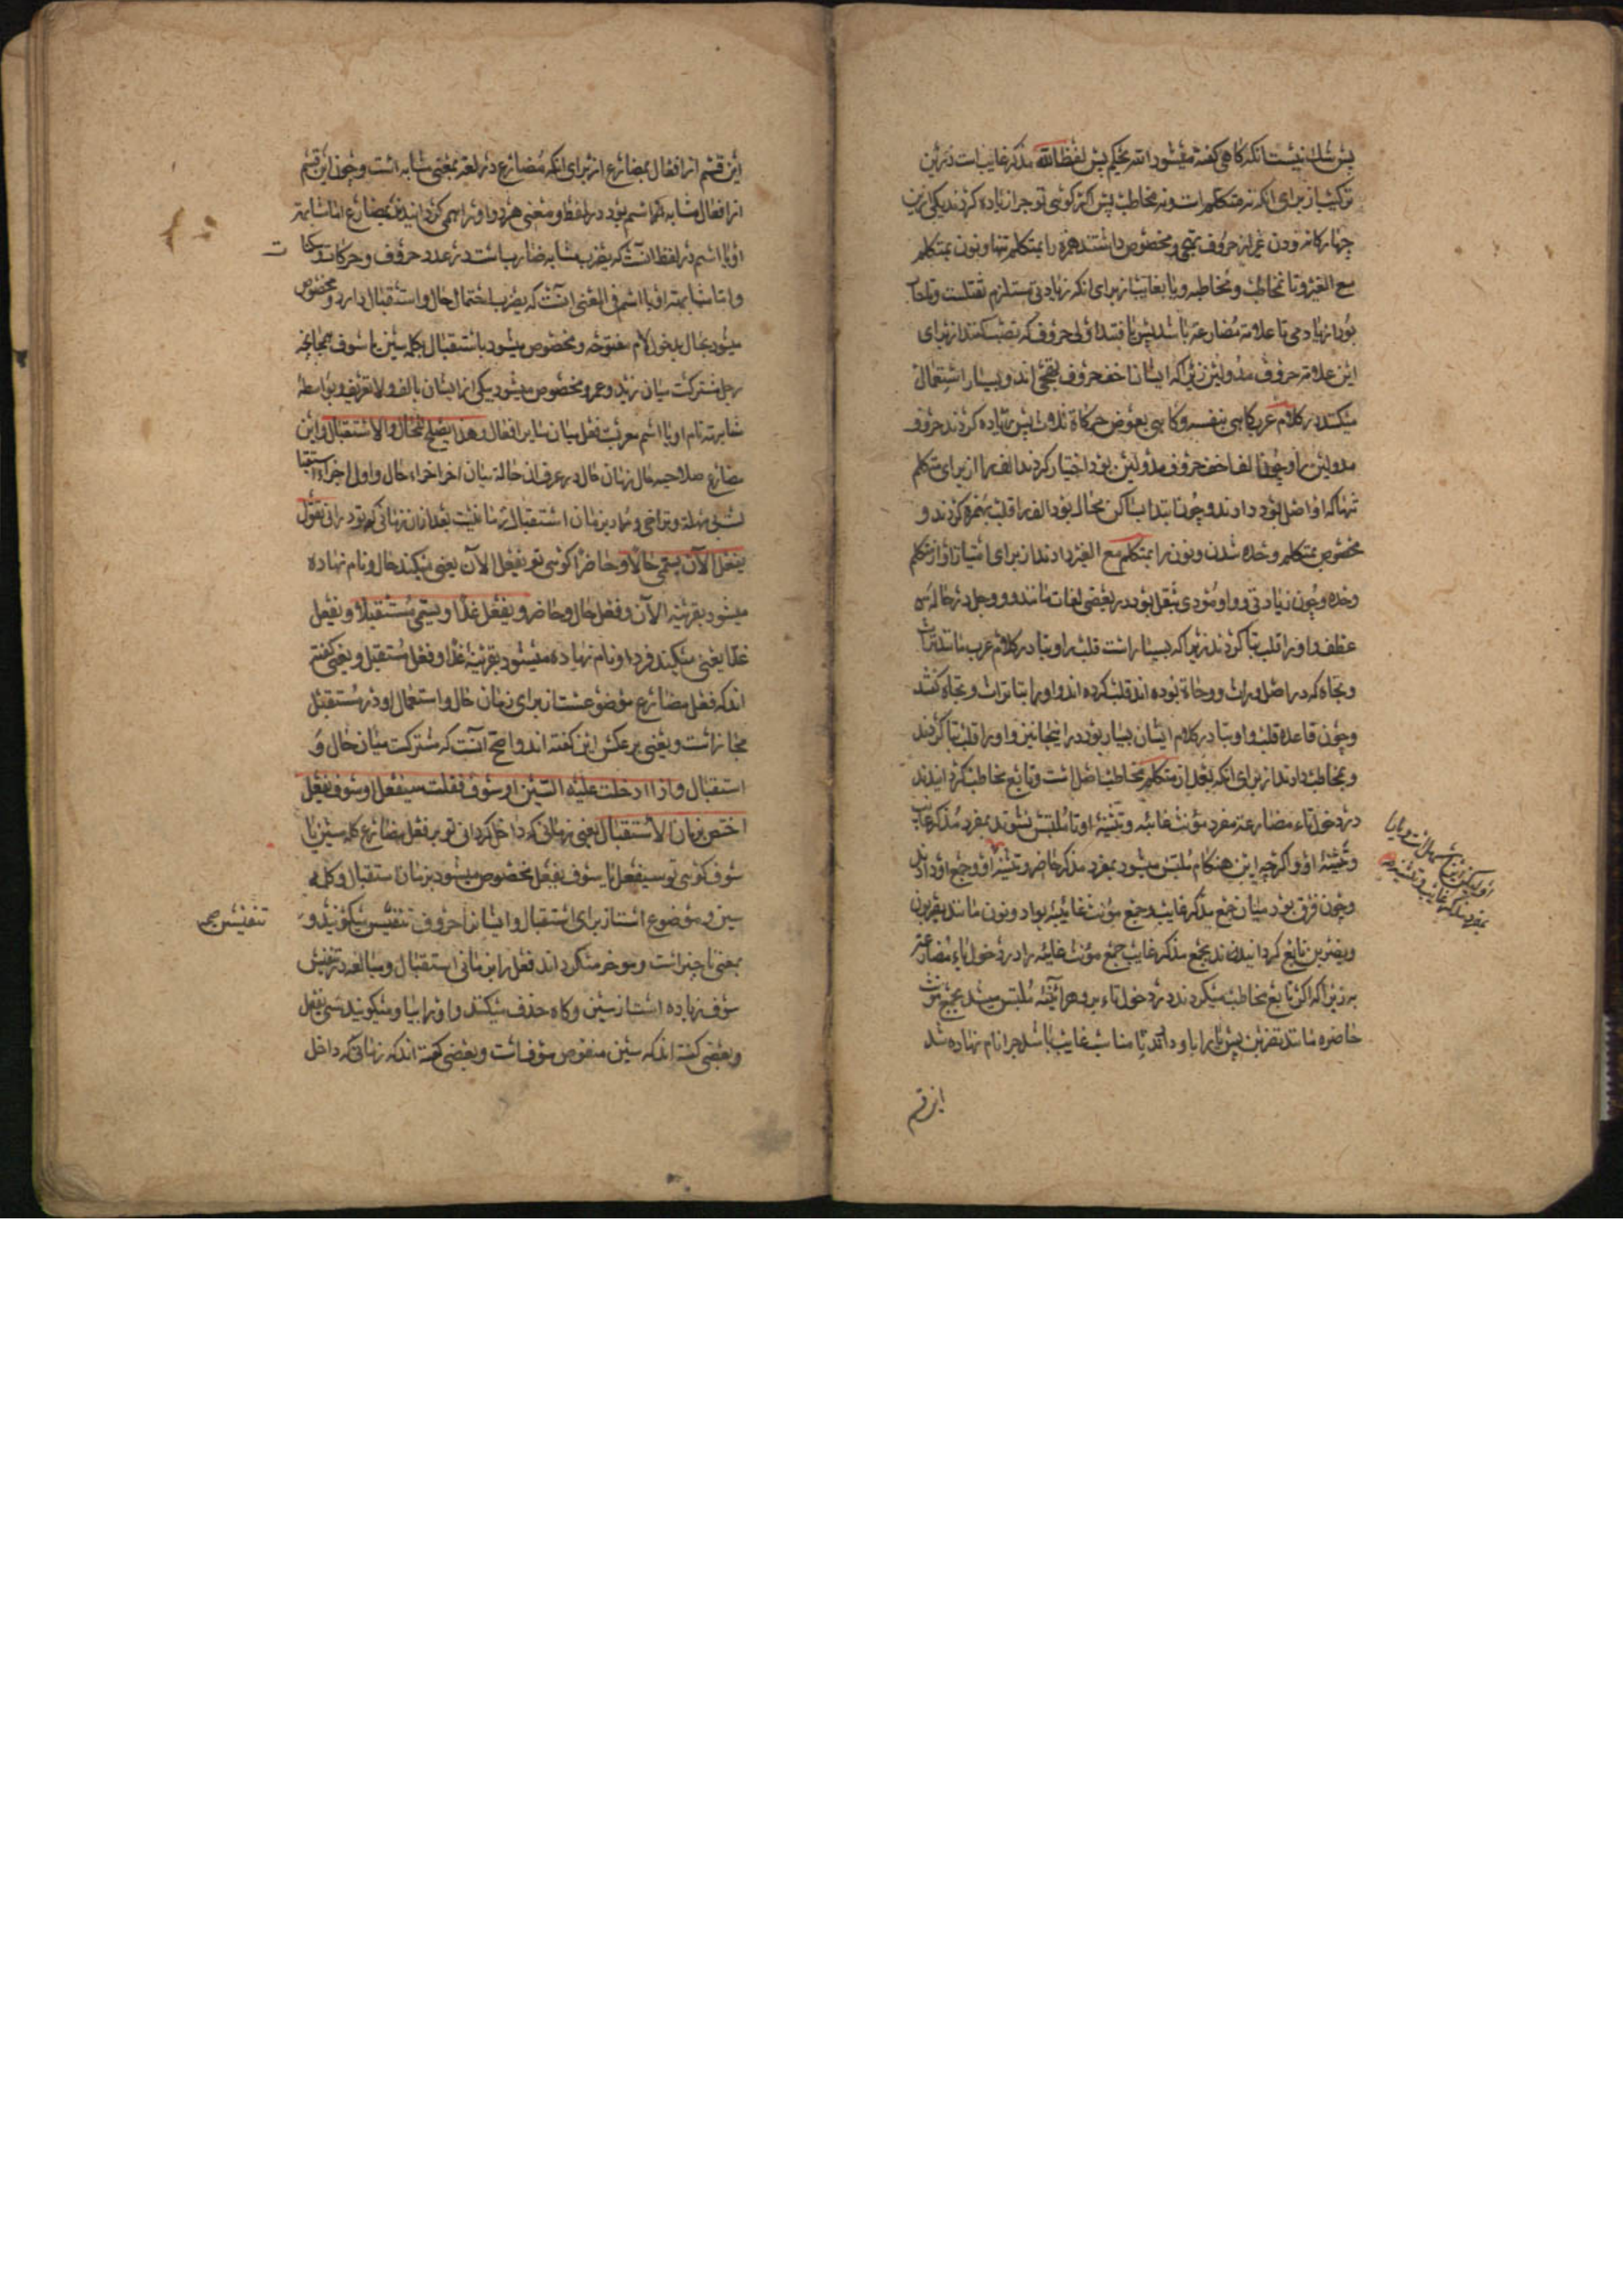 پس شك نیست انکه کاهی کفته میشود الله یحکم پس لفظ الله مذکر غایب است در این
ترکیب از برای انکه نه متکلم است و نه مخاطب پس اکر کوئی تو چرا زیاده کردند یکی ازین
چهار کانه و دون غیر از حروف تهجی و مخصوص داشتند همزه را بمتکلم تنها و نون بمتکلم
مع الغیر و تا بمخاطب و مخاطبه و یا بغایب از برای انکه زیادتی مستلزم ثقلست
بود از یادمی تا علامة مضارعة باشد پس یافتند اولی حروف که نصب کنند از برای
این علامة حروف مد و لین زیرا که ایشان اخف حروف تهجی اند و بسیار استعمال
میکنند در کلام عرب کاهی بنفسه و کاهی بعوض حرکاة ثلاث پس زیاده کردند حروف
مد و لین را و چون الف اخف حروف مد و لین بود اختیار کردند الف را از برای متکلم
تنها که او اصل بود دادند و چون ابتدا بساکن محال بود الف را قلب بهمزه کردند و
مخصوص بمتکلم وحده شدن و نون را بمتکلم مع الغیر دادند از برای امتیاز او از متکلم
وحده و چون زیادتی واو مؤدی بثقل بود در بعضی لغات مانند و ووجل در حالة
عطف واو را قلب بتا کردند زیرا که بسیار است قلب واو بتا در کلام عرب مانند تراث
و تجاه که در اصل وراث و وجاة بوده اند قلب کرده اند واو را بتا تراث و تجاه کفتند
و چون قاعده قلب واو بتا در کلام ایشان بسیار بود در اینجا نیز واو را قلب بتا کردند
و بمخاطب دادند از برای انکه بعد از متکلم مخاطب اصل است و تابع مخاطب کردانیدند
در دخول تاء مضارعة مفرد مؤنث غائبه و تثنیهٔ او تا ملتبس نشوند بمفرد مذکر غایب
و تثنیهٔ او و اکر چه این هنکام ملتبس میشود بمفرد مذکر حاضر و تثنیهٔ او و جمع او
و چون فرق بود میان جمع مذکر غایب و جمع مؤنث غائبه بواو و نون مانند یضربون
و یضربن تابع کردانیدند بجمع مذکر غایب جمع مؤنث غایبه را در دخول یاء مضارعة
به زیرا که اکر تابع مخاطب میکردند در دخول تاء برو هر آینه ملتبس میشد بجمع مؤنث
حاضره مانند تضربن پس یا را باو دادند تا مناسب غایب باشد چرا نام نهاده شد
این قسم
این قسم از افعال بمضارع از برای انکه مضارع در لغة بمعنی مشابه است و چون این قسم
از افعال مشابه باسم بود در لفظ و معنی هر دو او را مسمی کردانیدند بمضارع اما مشابهة
او با اسم در لفظ آنست که یضرب مشابه ضارب است در عدد حروف و حرکات و سکنات
و اما مشابهة او با اسم فی المعنی آنست که یضرب احتمال حال و استقبال دارد و مخصوص
میشود بحال بدخول لام مفتوحه و مخصوص میشود باستقبال بکلمه سین یا سوف همچنانچه
رجل مشترکست میان زید و عمرو و مخصوص میشود بیکی از ایشان بالف و لام تعریف و بواسطهٔ
مشابهة تام او با اسم معربست فعل میان سایر افعال و هذا یصلح للحال و الاستقبال و این
مضارع صلاحیه حال زمان حال در عرف ان حالة میان اخر اجزاء حال و اول اجزاء استقبا
بی مهلة و تراخی و مراد بزمان استقبال زمانیست بعد از ان زمانی که تو درانی تقول
یفعل الآن یسمی حالا و حاضرا کوئی تو یفعل الآن یعنی میکند حال و نام نهاده
میشود بقرینه الآن و فعل حال و حاضر و یفعل غدا و یسمی مستقبلا و یفعل
غدا یعنی میکند فردا و نام نهاده میشود بقرینهٔ غدا و فعل مستقبل و بعضی کفته
اند که فعل مضارع موضوعست از برای زمان حال و استعمال او در مستقبل
مجاز است و بعضی بر عکس این کفته اند و اصح آنست که مشترکست میان حال و
استقبال و اذا ادخلت علیه السین او سوف فقلت سیفعل او سوف یفعل
اختص بزمان الاستقبال یعنی زمانی که داخل کردانی تو بر فعل مضارع کلمه سین یا
سوف کوئی تو سیفعل یا سوف یفعل مخصوص میشود بزمان استقبال و کلمه
سین و موضوع است از برای استقبال و ایشان را حروف تنفیس میکویند و
تنفیس صح
بمعنی تاخیر است و موخر میکرداند فعل را بزمانی استقبال و مبالغه در تنفیس
سوف زیاده است از سین و کاه حذف میکنند واو را بیا و میکویند سی یفعل
و بعضی کفته اند که سین منقوص سوف است و بعضی کفته اند که زمانی که داخل